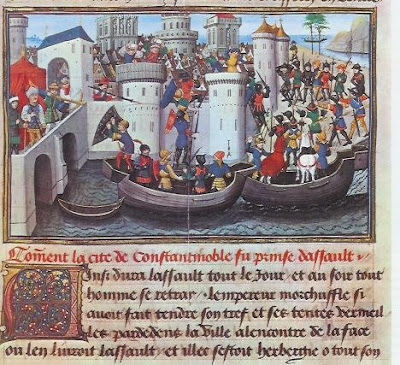 Coment la cite de Constantinoble fu prinse dassault
Ainsi dura lassault tout le Jour et au soir tout
homme se retray. lempereur morchuffle si
avoit fait tendre son tref et ses tentes vermeil
les pardedens la ville alencontre de la face
ou len livroit lassault, et illec sestoit herberghe o tout son